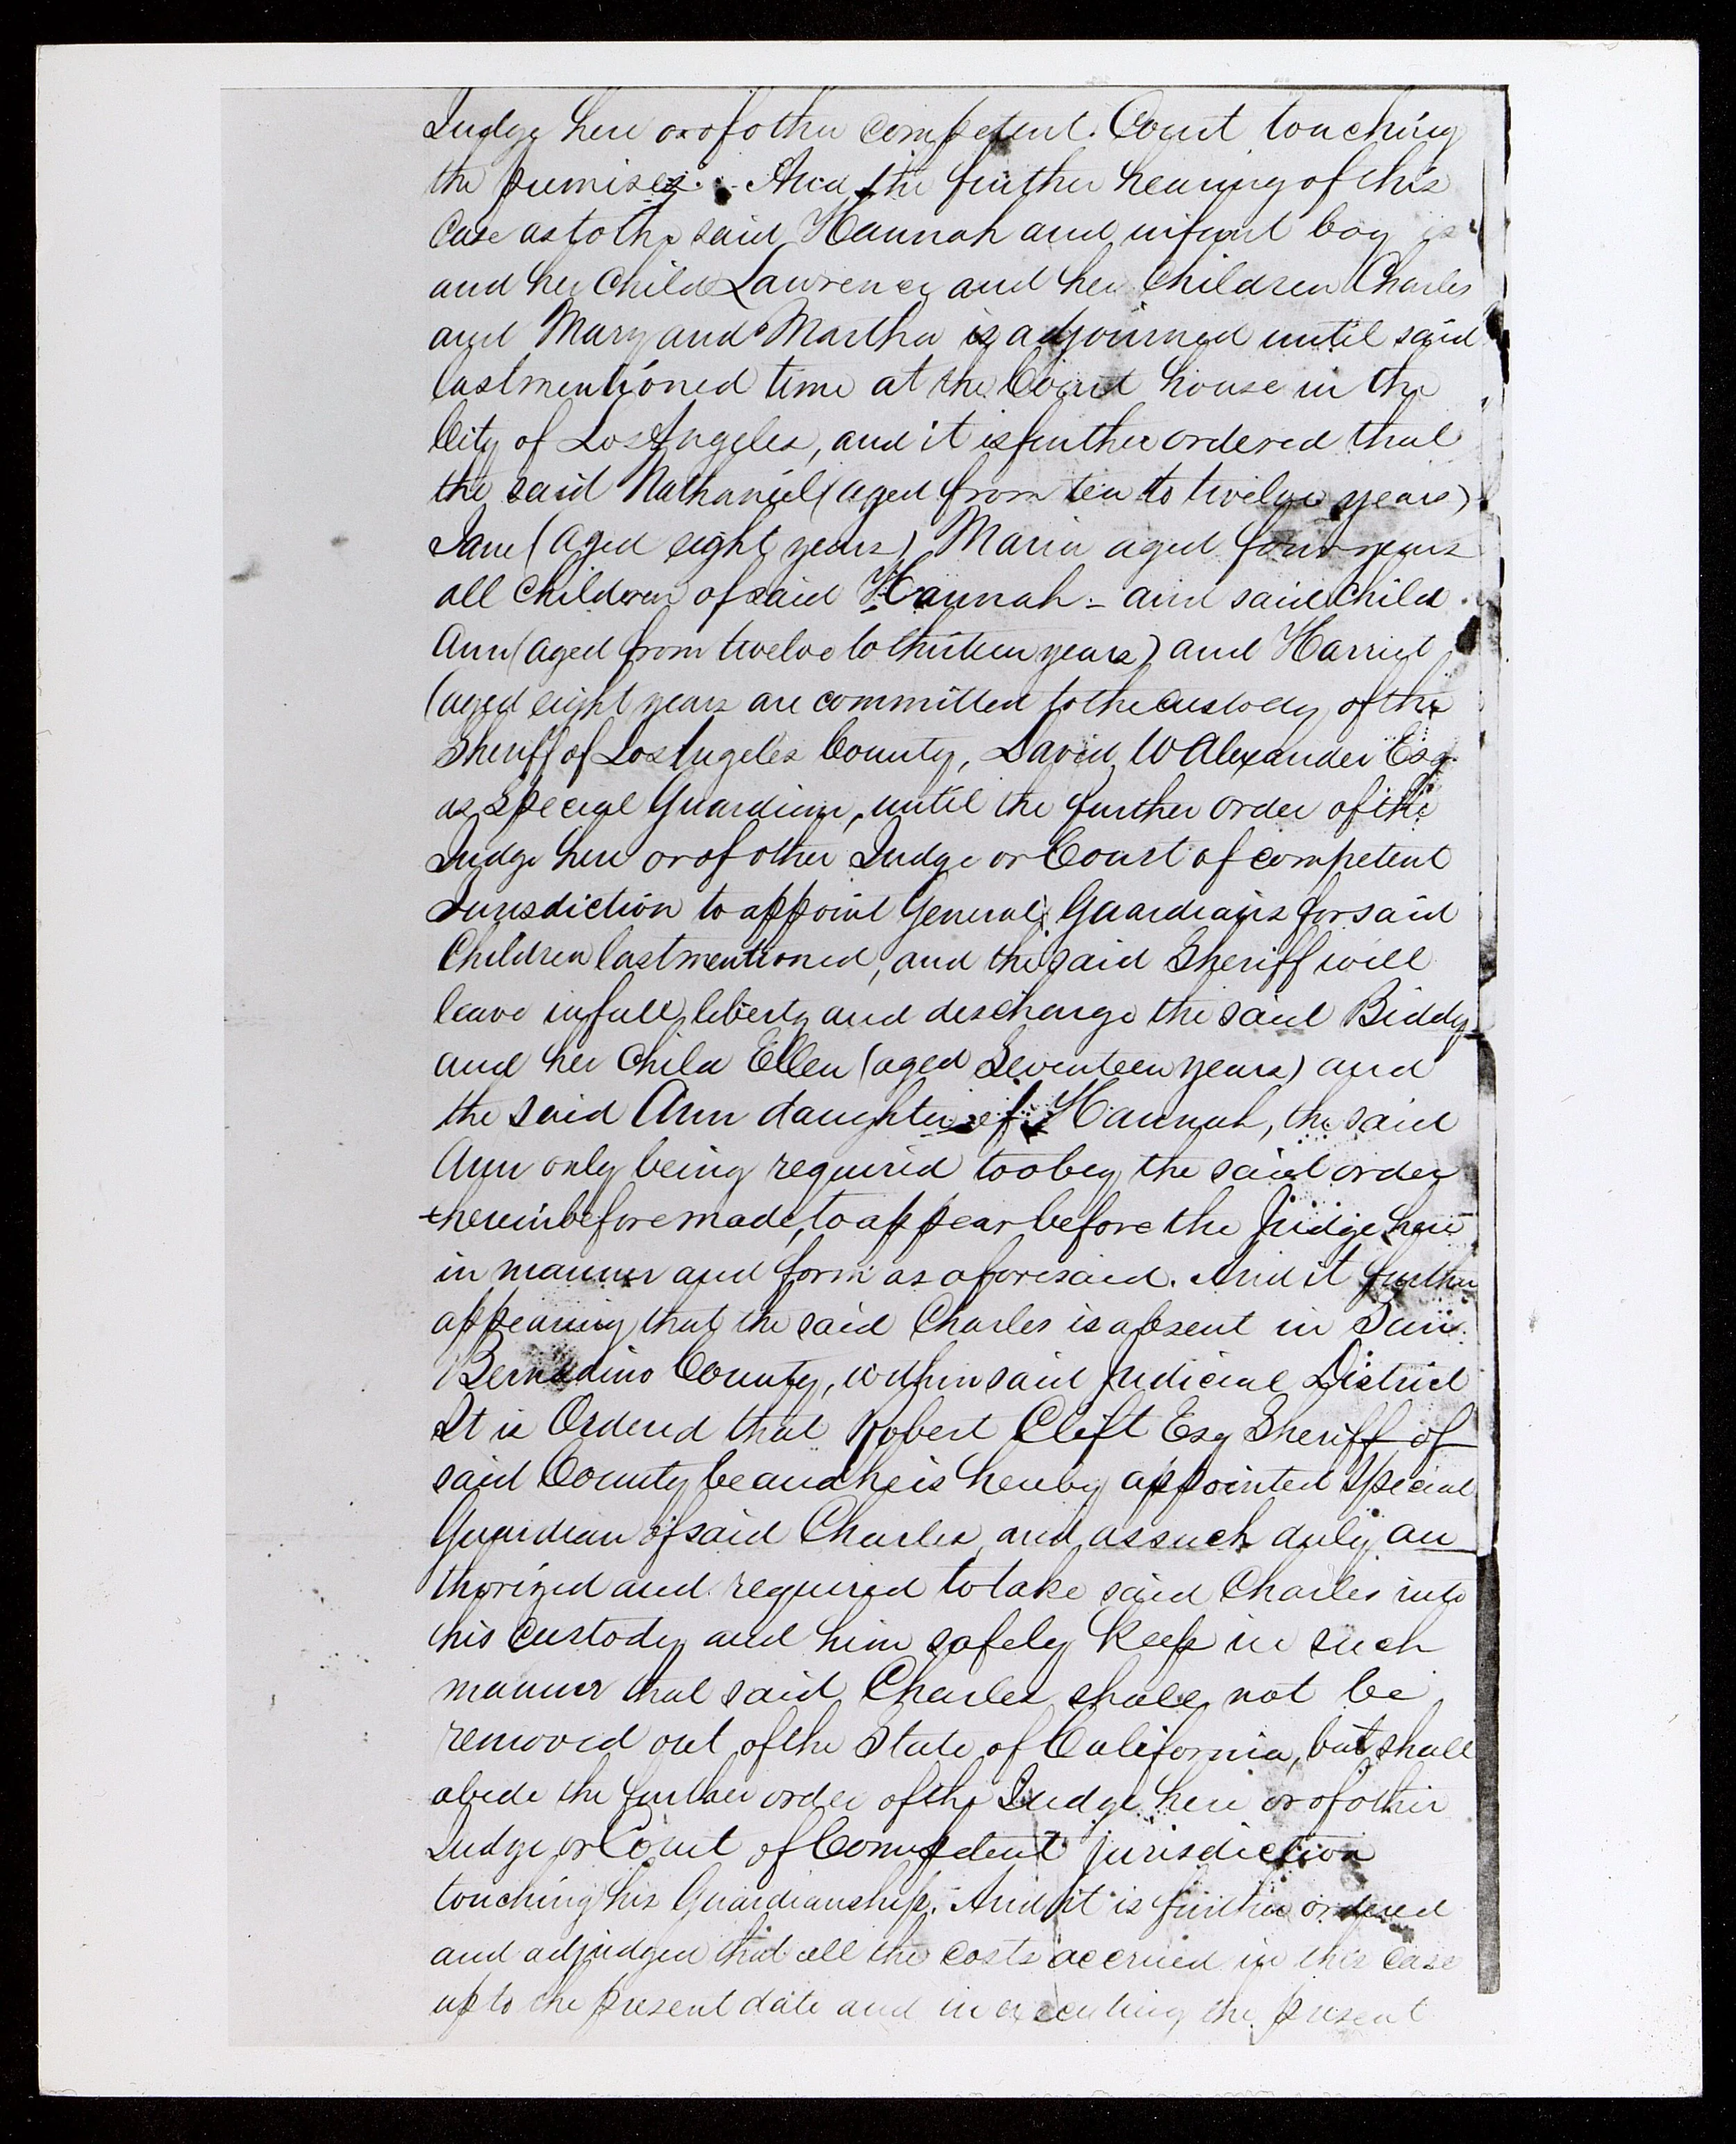 Judge here or of other competent Court touching
the premises. And the further hearing of this
Case as to the said Hannah and infant boy
and her Child Lawrence and her Children Charles
and Mary and Martha is adjourned until said
last mentioned time at the Court house in the
City of Los Angeles, and it is further ordered that
the said Nathaniel (aged from ten to twelve years)
Jane (aged eight years) Maria aged four years
all Children of said Hannah - and said Child
Ann (aged from twelve to thirteen years) and Harriet
(aged eight years are committed to the custody of the
Sheriff of Los Angeles County, David W Alexander Esq.
as Special Guardian, until the further order of the
Judge here or of other Judge or Court of competent
Jurisdiction to appoint General Guardians for said
Children last mentioned, and the said Sheriff will
leave in full liberty and discharge the said Biddy
and her Child Ellen (aged Seventeen years) and
the said Ann daughter of Hannah, the said
Ann only being required to obey the said order
hereinbefore made, to appear before the Judge here
in manner and form as aforesaid. And it further
appearing that the said Charles is absent in San
Bernadino County, within said Judicial District
It is Ordered that Robert Clift Esq Sheriff of
said County be and he is hereby appointed Special
Guardian of said Charles, and as such duly au
thorized and required to take said Charles into
his custody and him safely keep in such
manner that said Charles shall not be
removed out of the State of California, but shall
abide the further order of the Judge here or of other
Judge or Court of Competent jurisdiction
touching his Guardianship. And it is further ordered
and adjudged that all the costs accrued in this case
up to the present date and in executing the present